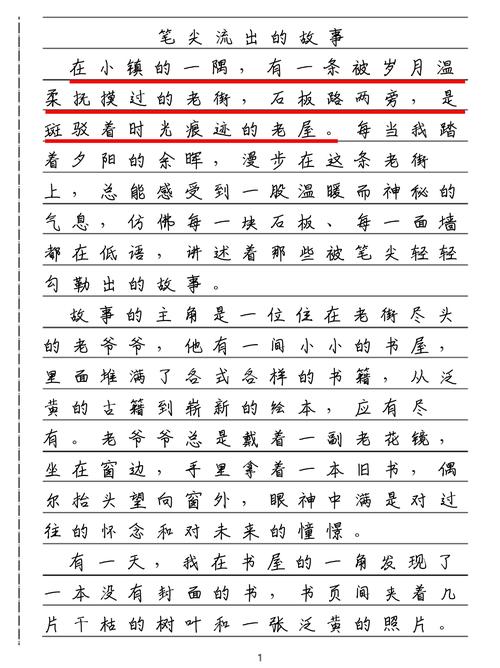 笔尖流出的故事
在小镇的一隅，有一条被岁月温
柔抚摸过的老街，石板路两旁，是
斑驳着时光痕迹的老屋。每当我踏
着夕阳的余晖，漫步在这条老街
上，总能感受到一股温暖而神秘的
气息，仿佛每一块石板、每一面墙
都在低语，讲述着那些被笔尖轻轻
勾勒出的故事。
故事的主角是一位住在老街尽头
的老爷爷，他有一间小小的书屋，
里面堆满了各式各样的书籍，从泛
黄的古籍到崭新的绘本，应有尽
有。老爷爷总是戴着一副老花镜，
坐在窗边，手里拿着一本旧书，偶
尔抬头望向窗外，眼神中满是对过
往的怀念和对未来的憧憬。
有一天，我在书屋的一角发现了
一本没有封面的书，书页间夹着几
片干枯的树叶和一张泛黄的照片。
1